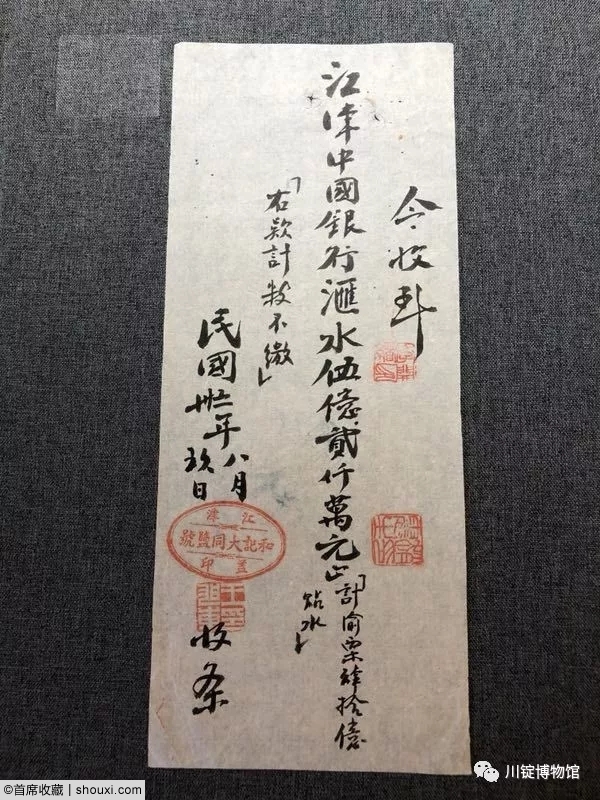 今收到
江津中國銀行滙水伍億貳仟萬元正
「計渝票肆拾億
貼水」
「右款計数不繳」
民國年八月
玖日
江津
和記大同鹽號
蓋印
收条
©首席收藏 | shouxi.com
川锭博物馆